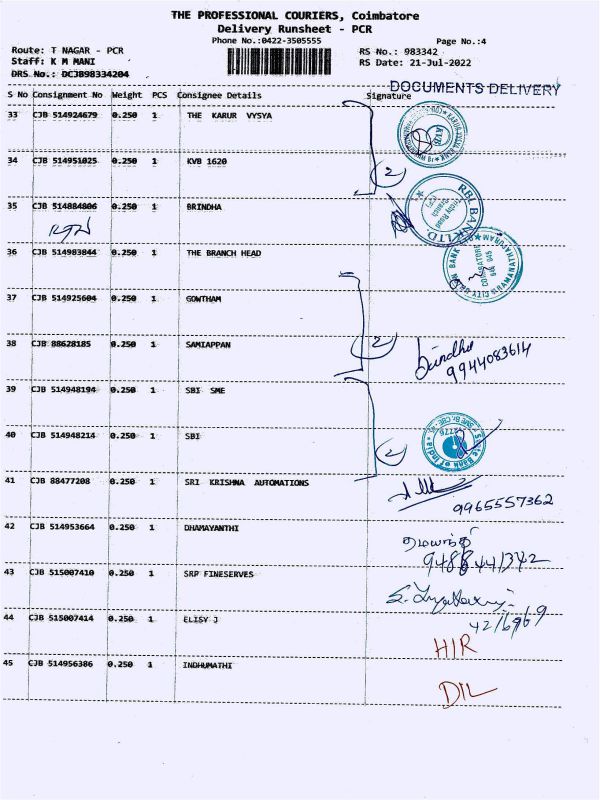 THE PROFESSIONAL COURIERS, Coimbatore
Delivery Runsheet - PCR
Phone No.:0422-3505555 Page No.:4
Route: T NAGAR - PCR RS No.: 983342
Staff: K M MANI RS Date: 21-Jul-2022
DRS No.: DCJB98334204
DOCUMENTS DELIVERY
S No Consignment No Weight PCS Consignee Details Signature
33 CJB 514924679 0.250 1 THE KARUR VYSYA
34 CJB 514951025 0.250 1 KVB 1620
2
35 CJB 514884806 0.250 1 BRINDHA
RBL BANK LTD.
RTN
36 CJB 514983844 0.250 1 THE BRANCH HEAD
37 CJB 514925604 0.250 1 GOWTHAM
38 CJB 88628185 0.250 1 SAMIAPPAN
2
9944083614
39 CJB 514948194 0.250 1 SBI SME
40 CJB 514948214 0.250 1 SBI
State Bank of India
2
41 CJB 88477208 0.250 1 SRI KRISHNA AUTOMATIONS
9965557362
42 CJB 514953664 0.250 1 DHAMAYANTHI
43 CJB 515007410 0.250 1 SRP FINESERVES
44 CJB 515007414 0.250 1 ELISY J
HIR
45 CJB 514956386 0.250 1 INDHUMATHI
DIL